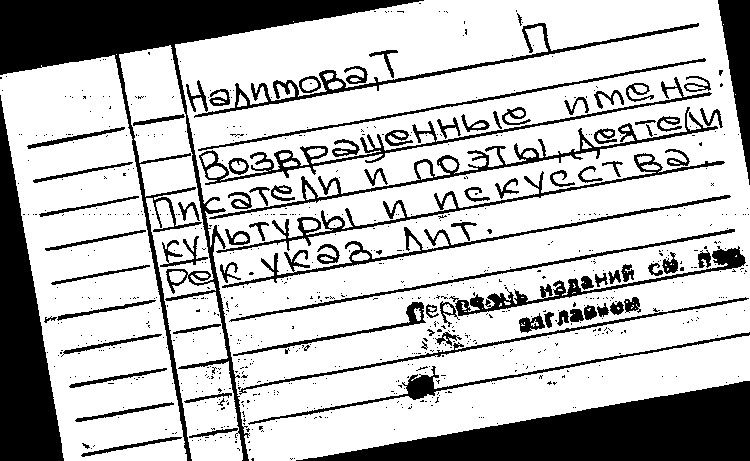 П
Налимова, Т
Возвращенные имена:
Писатели и поэты, деятели
культуры и искусства:
Рек. указ. лит.
Перечень изданий см. под
заглавием